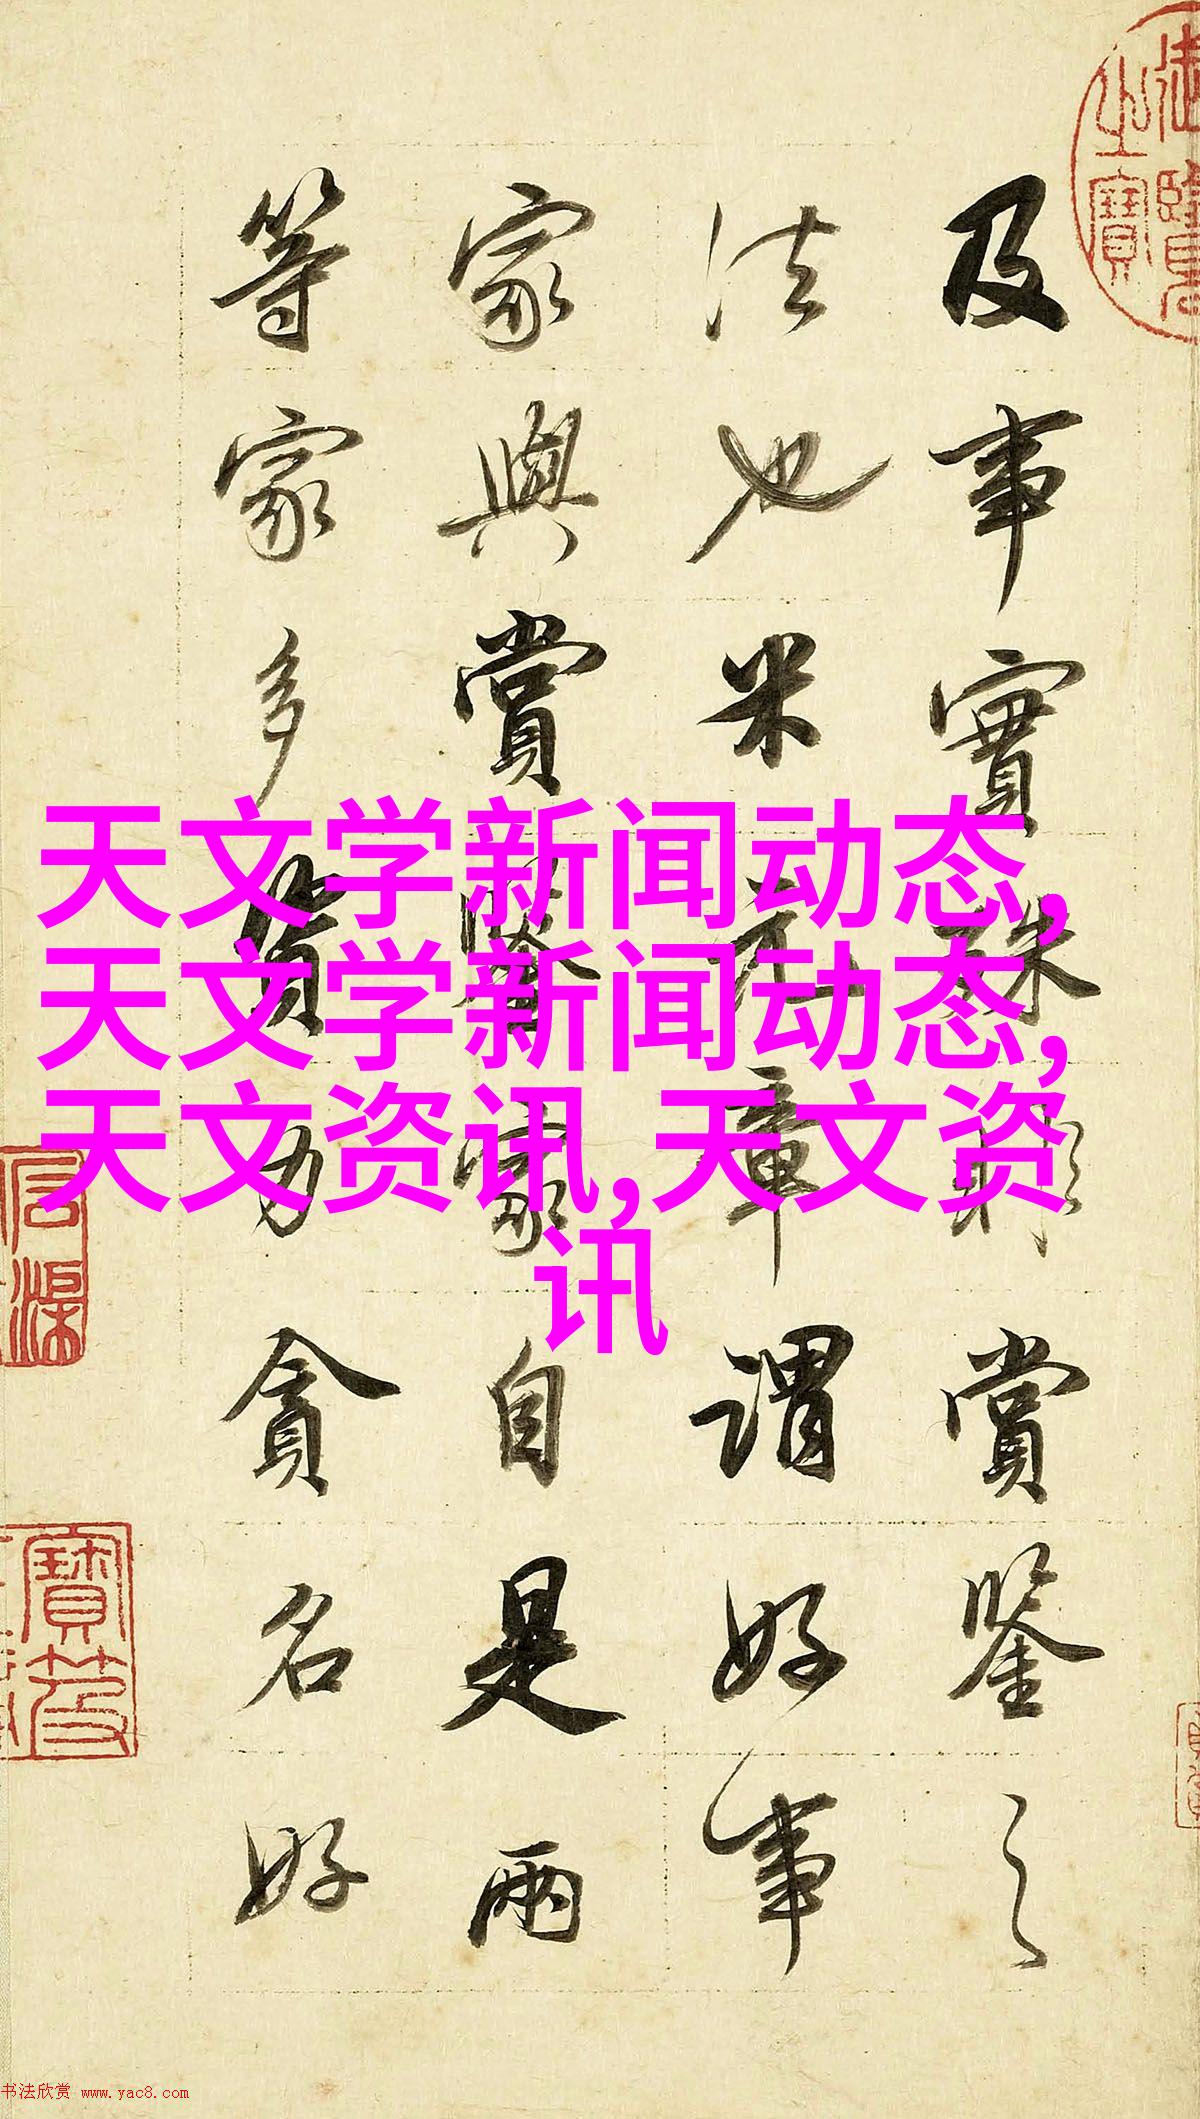 御覽之寶
及事實殊賞鑒之
法也米元章謂好事
家與賞鑒家自是兩
等家多資力貪名好
天文学新闻动态,
天文学新闻动态,
天文资讯,天文资
讯
书法欣赏 www.yac8.com